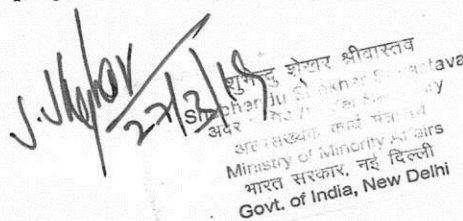 27/3/19
शुभेन्दु शेखर श्रीवास्तव
Shubhendu Shekhar Srivastava
अवर सचिव / Under Secretary
अल्पसंख्यक कार्य मंत्रालय
Ministry of Minority Affairs
भारत सरकार, नई दिल्ली
Govt. of India, New Delhi